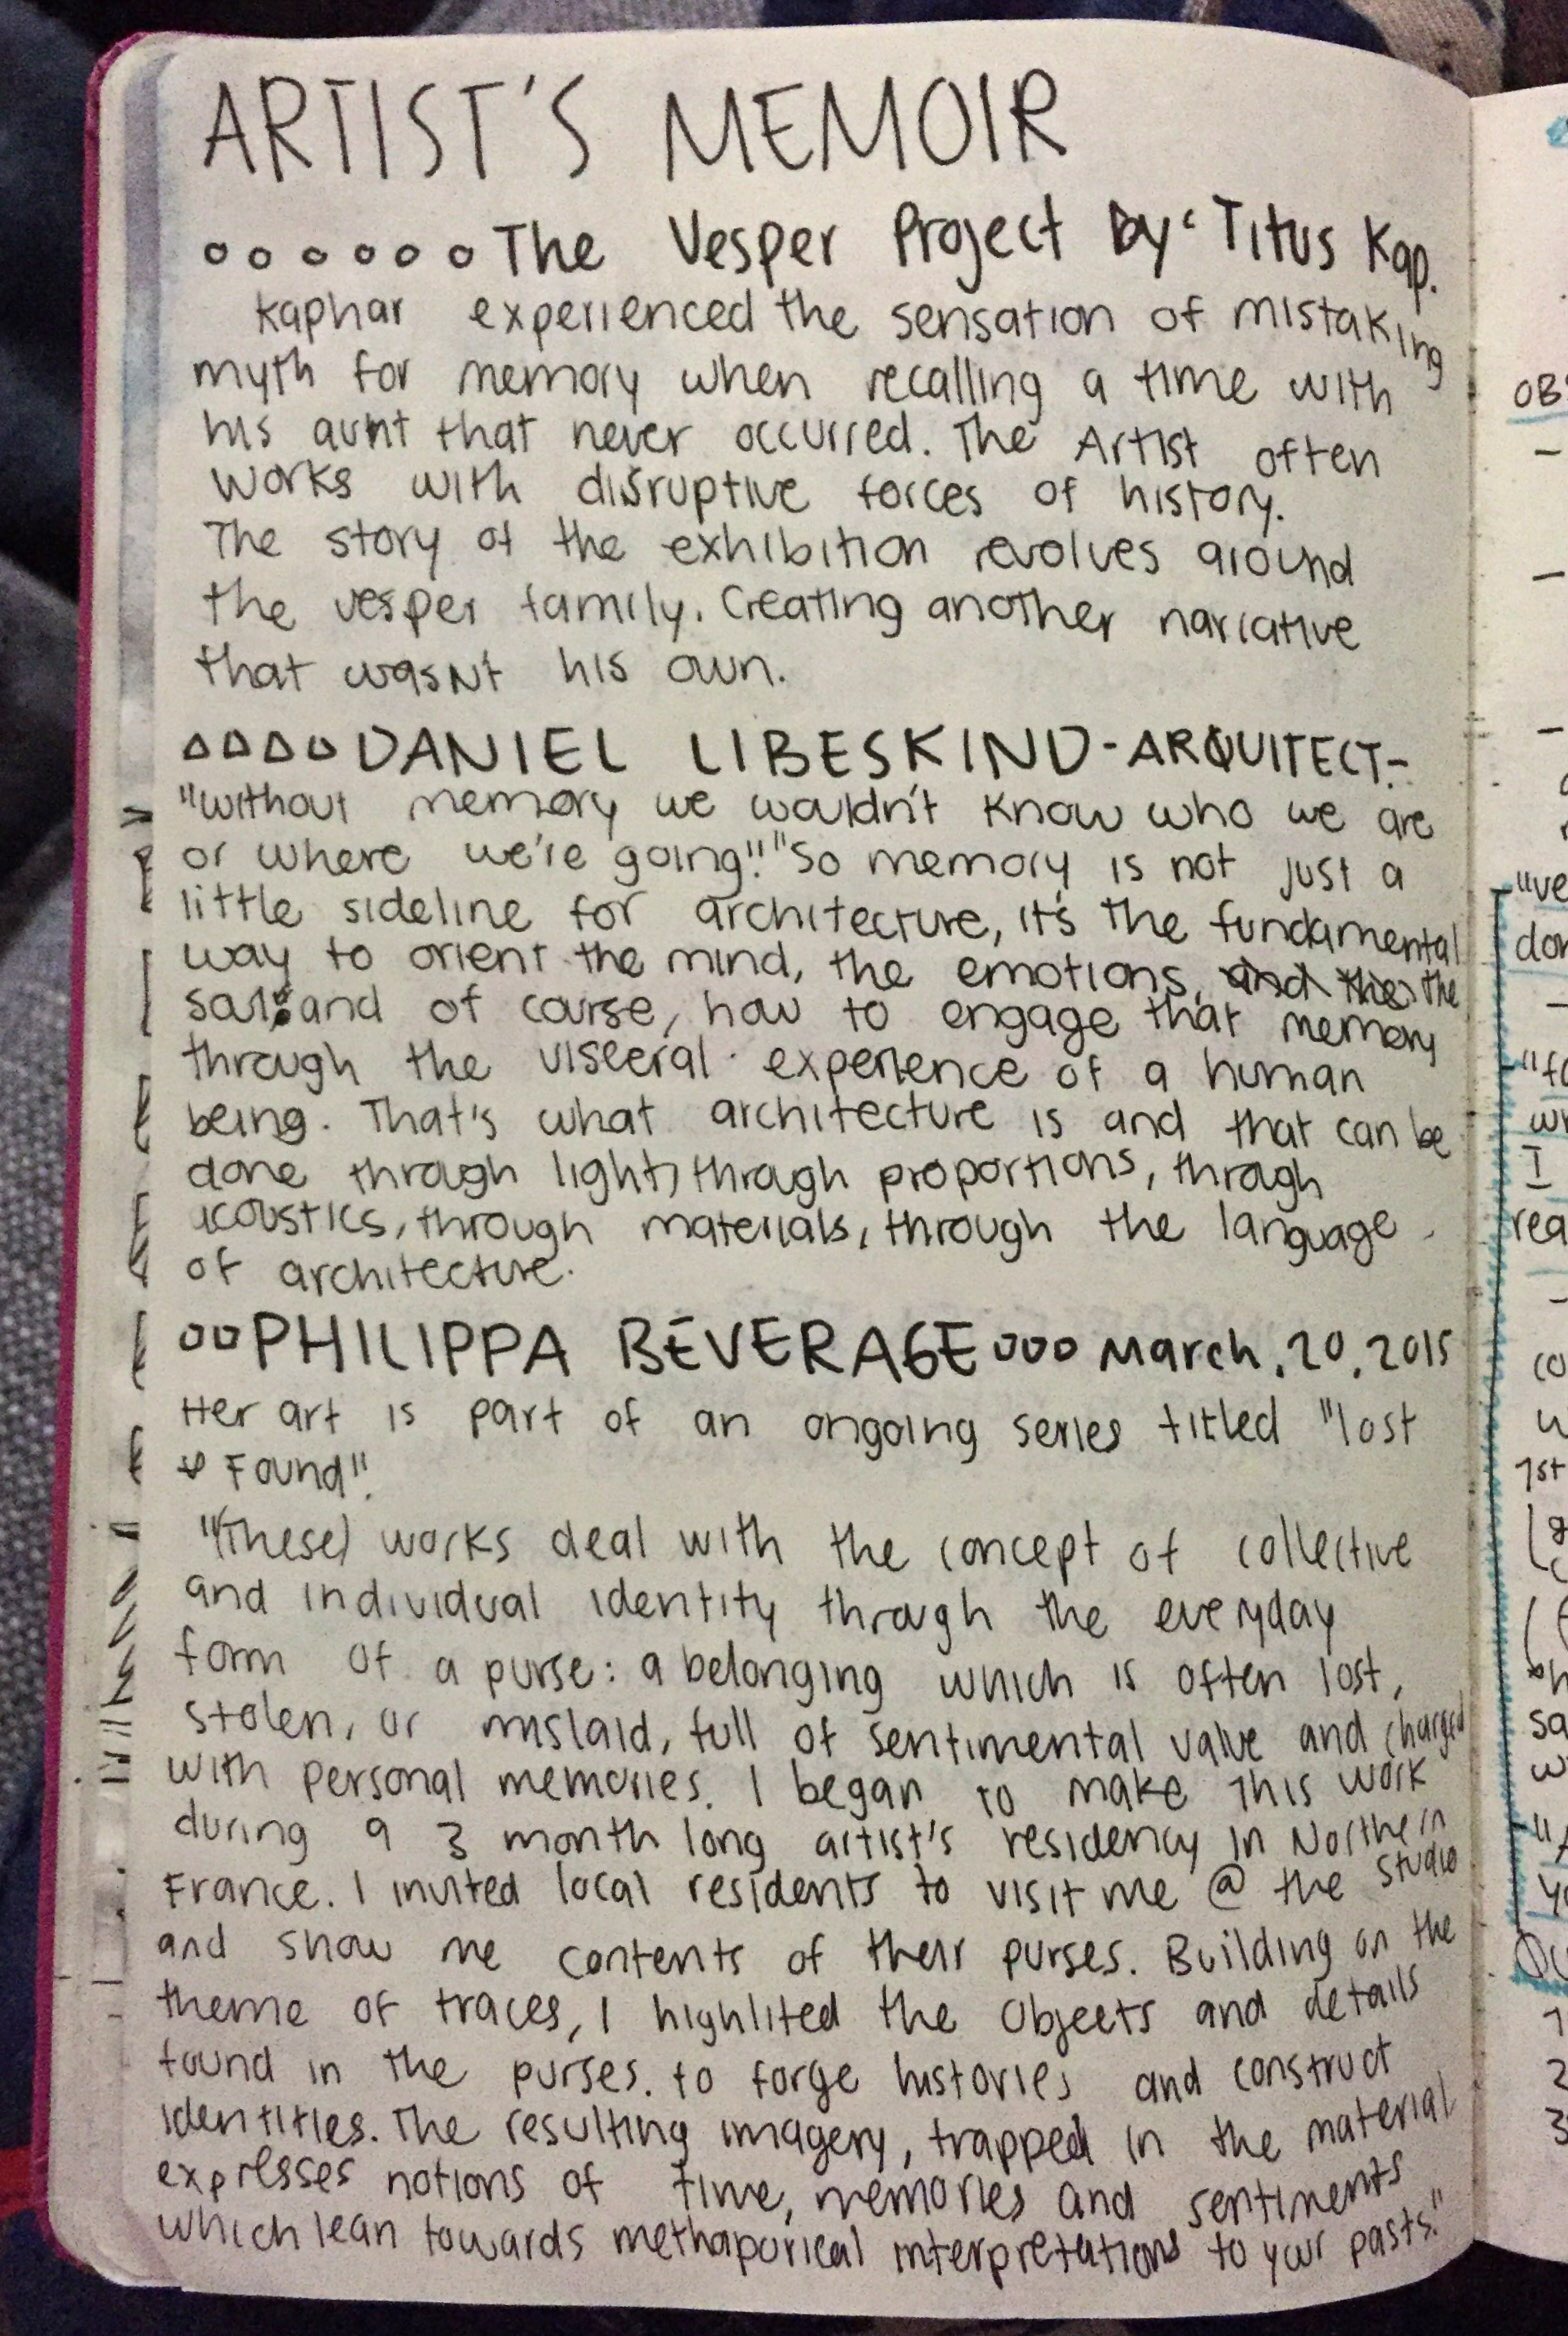 ARTIST'S MEMOIR
The Vesper Project by: Titus Kap.
Kaphar experienced the sensation of mistaking
myth for memory when recalling a time with
his aunt that never occurred. The Artist often
works with disruptive forces of history.
The story of the exhibition revolves around
the vesper family. Creating another narrative
that wasn't his own.
DANIEL LIBESKIND - ARQUITECT -
"without memory we wouldn't know who we are
or where we're going!" "So memory is not just a
little sideline for architecture, it's the fundamental
way to orient the mind, the emotions, and the the
and of course, how to engage that memory
through the visceral experience of a human
being. That's what architecture is and that can be
done through light, through proportions, through
acoustics, through materials, through the language
of architecture.
PHILIPPA BEVERAGE March. 20. 2015
Her art is part of an ongoing series titled "lost
& Found".
"(These) works deal with the concept of collective
and individual identity through the everyday
form of a purse: a belonging which is often lost,
stolen, or mislaid, full of sentimental value and charged
with personal memories. I began to make this work
during a 3 month long artist's residency in Northern
France. I invited local residents to visit me @ the studio
and show me contents of their purses. Building on the
theme of traces, I highlited the objects and details
found in the purses. to forge histories and construct
identities. The resulting imagery, trapped in the material
expresses notions of time, memories and sentiments
which lean towards methaporical interpretations to your pasts."
OBS
"ve
don
I
rea
1st
sa
1
2
3